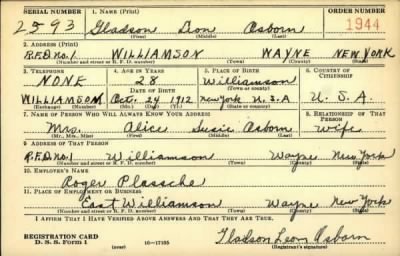 SERIAL NUMBER 1. NAME (Print) ORDER NUMBER
2593 Gladson Leon Osborn 1944
(First) (Middle) (Last)
2. ADDRESS (Print)
R.F.D. No. 1 WILLIAMSON WAYNE NEW YORK
(Number and street or R. F. D. number) (Town) (County) (State)
3. TELEPHONE 4. AGE IN YEARS 5. PLACE OF BIRTH 6. COUNTRY OF CITIZENSHIP
NONE 28 Williamson
DATE OF BIRTH (Town or county)
WILLIAMSON Oct. 24 1912 New York U.S.A U.S.A
(Exchange) (Number) (Mo.) (Day) (Yr.) (State or country)
7. NAME OF PERSON WHO WILL ALWAYS KNOW YOUR ADDRESS 8. RELATIONSHIP OF THAT PERSON
Mrs. Alice Susie Osborn Wife
(Mr., Mrs., Miss) (First) (Middle) (Last)
9. ADDRESS OF THAT PERSON
R.F.D. No 1 Williamson Wayne New York
(Number and street or R. F. D. number) (Town) (County) (State)
10. EMPLOYER'S NAME
Roger Plassche
11. PLACE OF EMPLOYMENT OR BUSINESS
East Williamson Wayne New York
(Number and street or R. F. D. number) (Town) (County) (State)
I AFFIRM THAT I HAVE VERIFIED ABOVE ANSWERS AND THAT THEY ARE TRUE.
REGISTRATION CARD
D. S. S. Form 1 (over) 16—17105 Gladson Leon Osborn
(Registrant's signature)